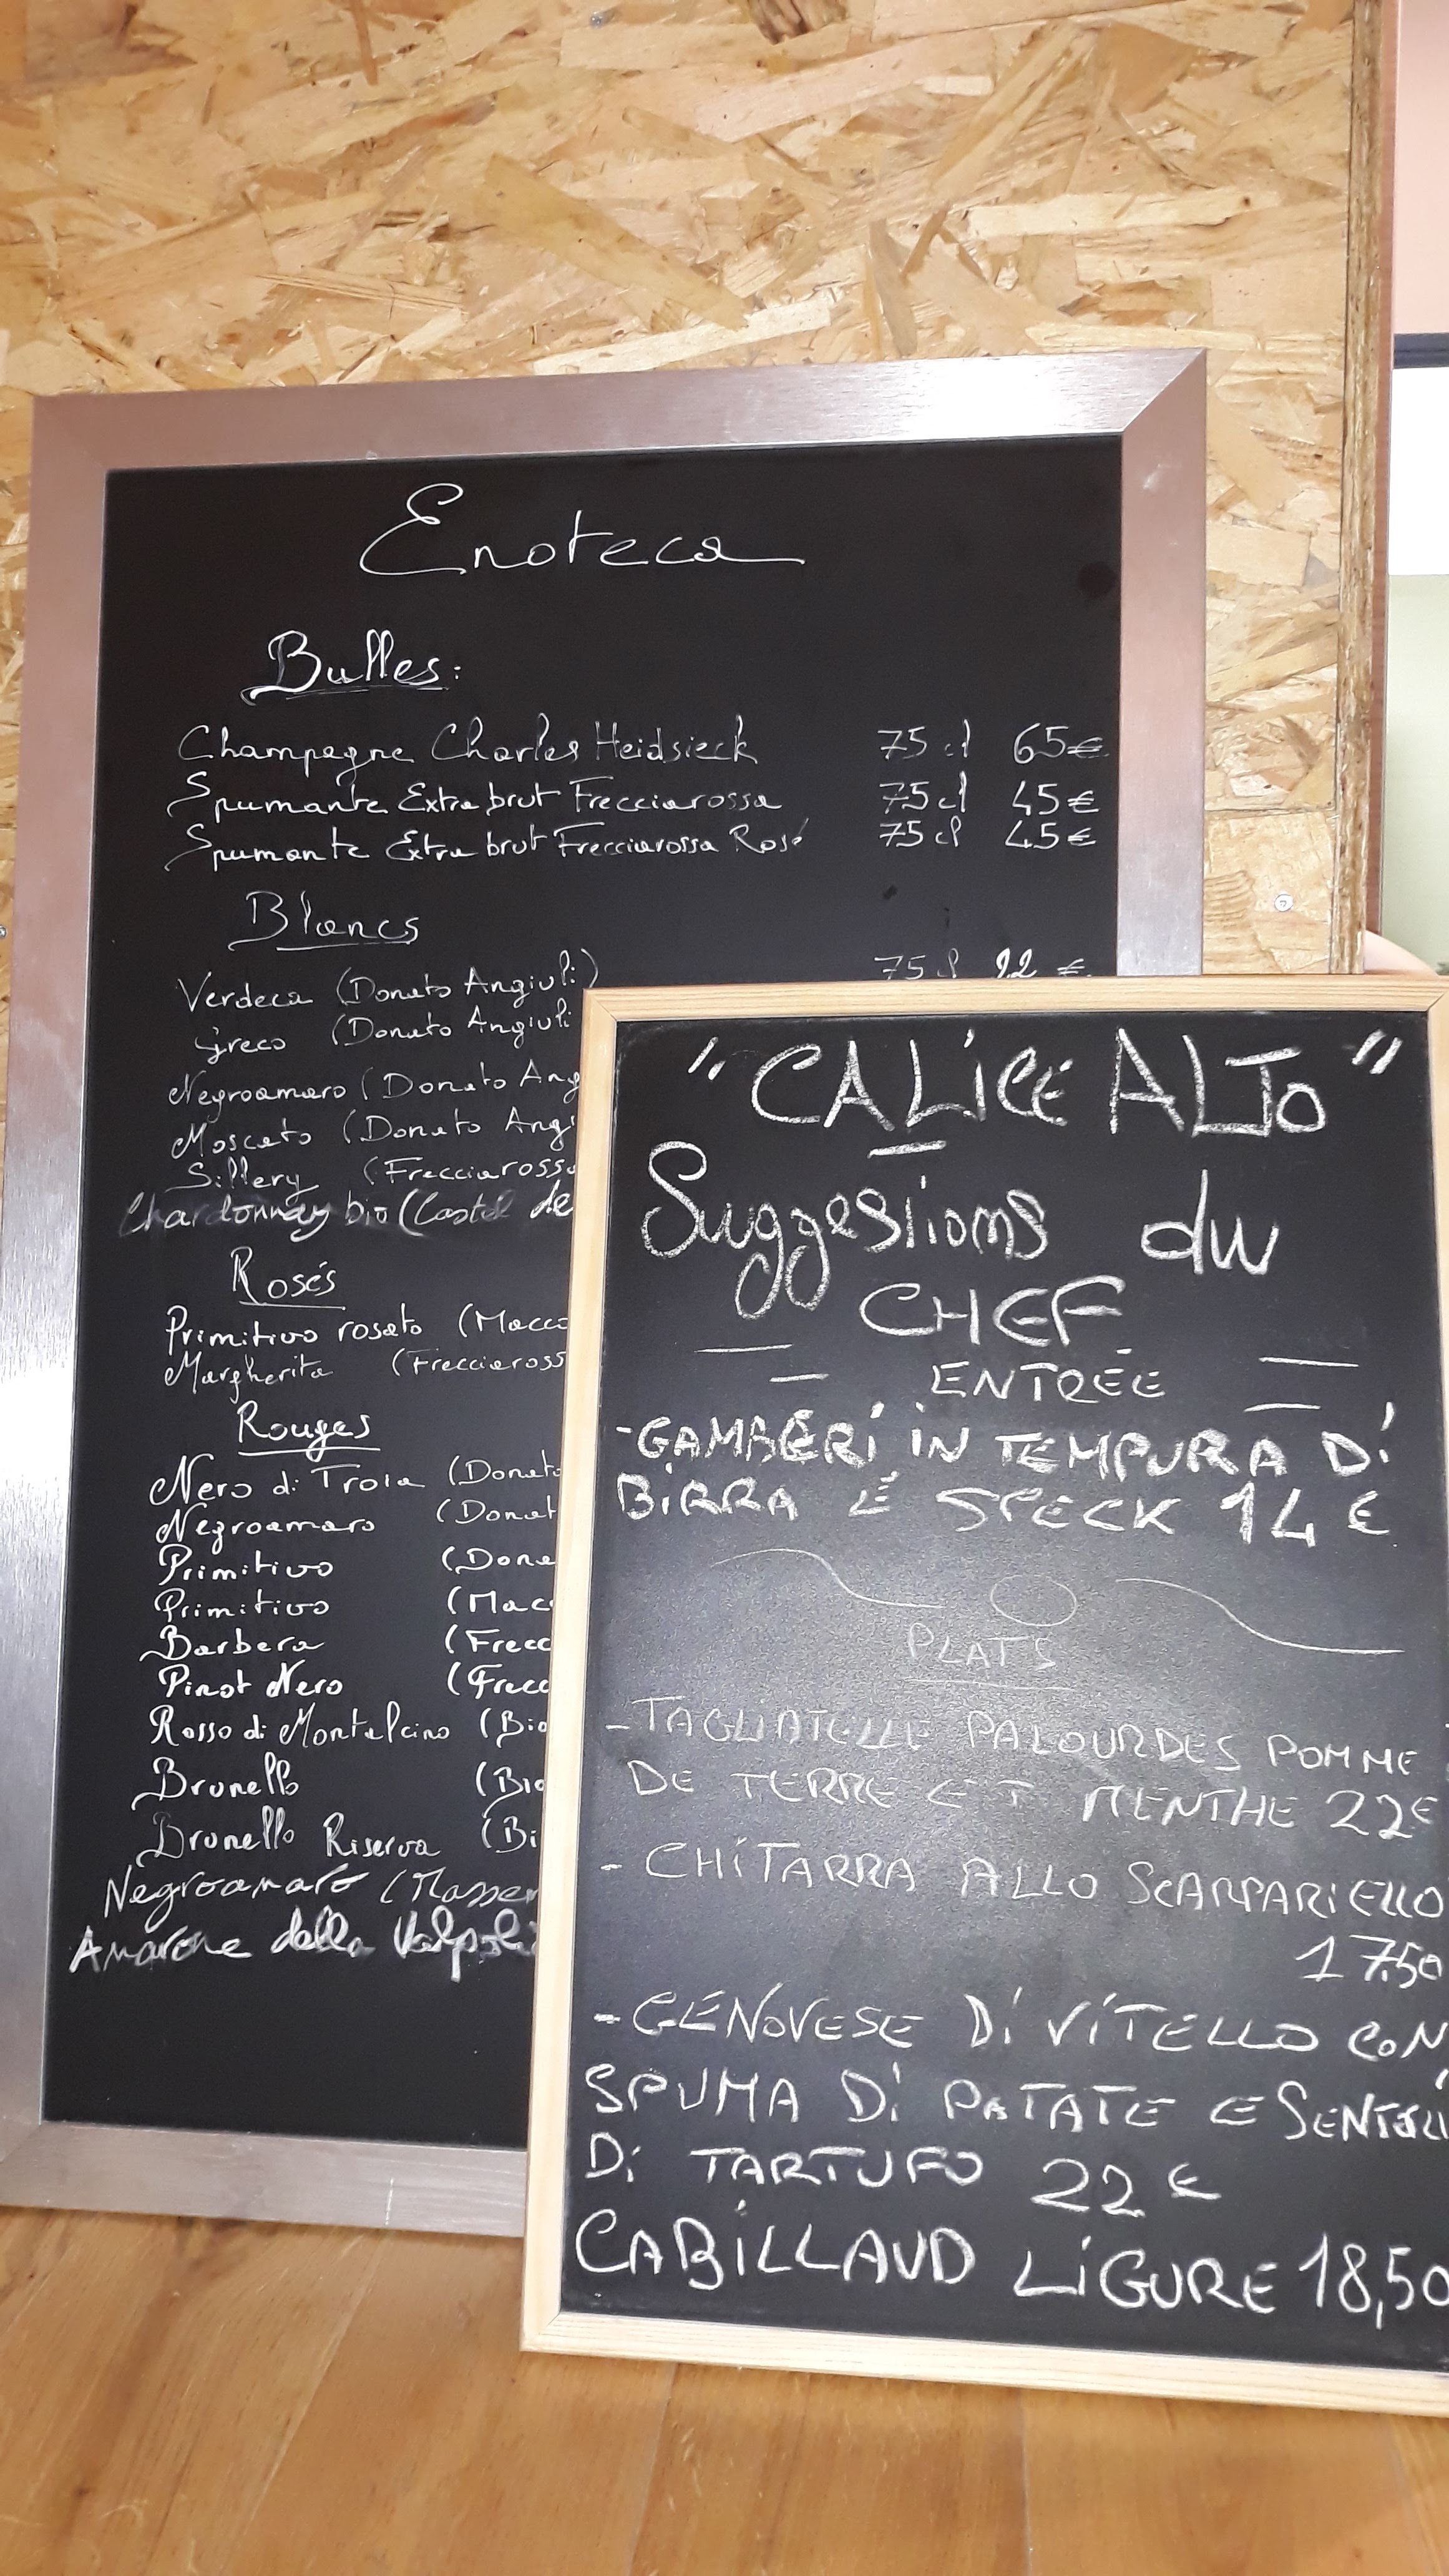 Enoteca
Bulles:
Champagne Charles Heidsieck 75 cl 65€
Spumante Extra brut Frecciarossa 75 cl 45€
Spumante Extra brut Frecciarossa Rosé 75 cl 45€
Blancs
Verdeca (Donato Angiuli) 75 cl 22 €
Greco (Donato Angiuli
Negroamaro (Donato Ang
Moscato (Donato Angi
Sillery (Frecciarossa
Chardonnay bio (Castel de
Rosés
Primitivo rosato (Macc
Margherita (Frecciaross
Rouges
Nero di Troia (Donato
Negroamaro (Donat
Primitivo (Dona
Primitivo (Mac
Barbera (Frecc
Pinot Nero (Frecc
Rosso di Montalcino (Bio
Brunello (Bio
Brunello Riserva (Bi
Negroamaro (Masser
Amarone della Valpoli
"CALiCE ALTO"
Suggestions du
CHEF
ENTRÉE
-GAMBERi iN TEMPURA Di
BiRRA E SPECK 14 €
PLATS
- TAGLIATELLE PALOURDES POMME
DE TERRE ET MENTHE 22€
- CHiTARRA ALLO SCARPARiELLO
17.50
- GENOVESE Di ViTELLO CON
SPUMA Di PATATE E SENTORI
Di TARTUFO 22 €
CABiLLAUD LiGURE 18,50